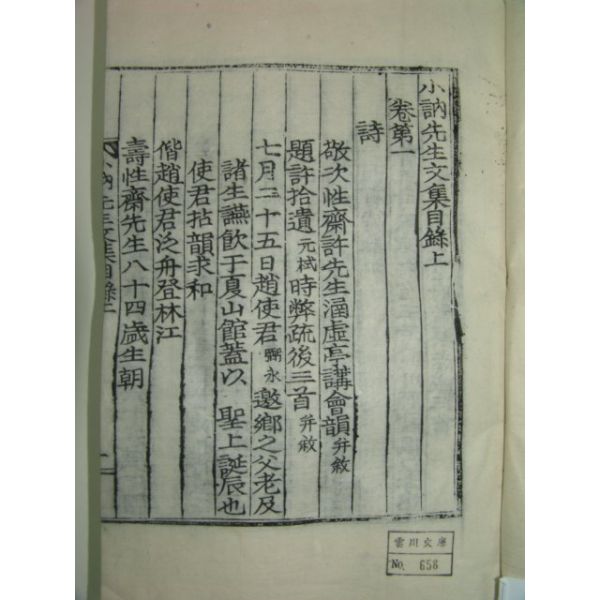 小訥先生文集目錄上
卷第一
詩
敬次性齋許先生涵虛亭講會韻 幷敘
題許拾遺 元栻 時弊疏後三首 幷敘
七月二十五日趙使君 弼永 邀鄕之父老及
諸生讌飮于夏山館蓋以 聖上誕辰也
使君拈韻求和
偕趙使君泛舟登林江
壽性齋先生八十四歲生朝
小訥先生文集目錄上
一
雲川文庫
No. 658